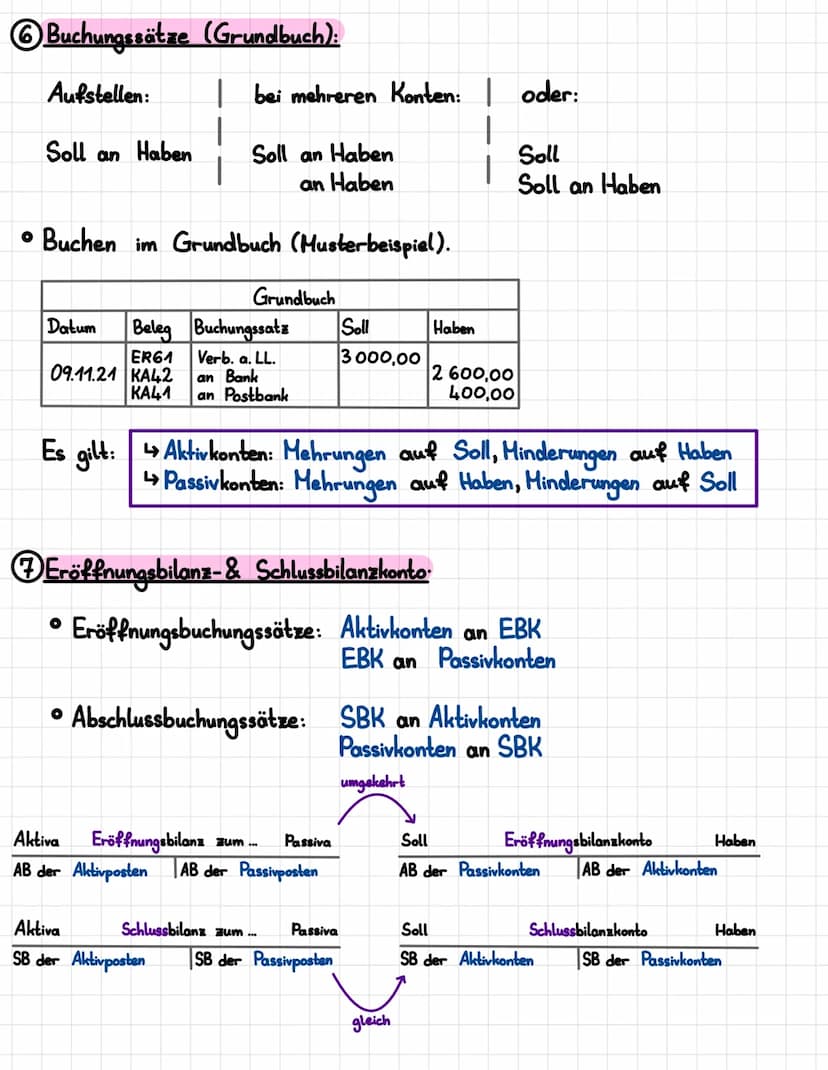 6 Buchungssätze (Grundbuch):
Aufstellen: | bei mehreren Konten: | oder:
Soll an Haben | Soll an Haben | Soll
an Haben | Soll an Haben
Buchen im Grundbuch (Musterbeispiel).
Grundbuch
Datum Beleg Buchungssatz Soll Haben
ER61 Verb. a. LL. 3 000,00
09.11.21 KA42 an Bank 2 600,00
KA41 an Postbank 400,00
Es gilt: ↳ Aktivkonten: Mehrungen auf Soll, Minderungen auf Haben
↳ Passivkonten: Mehrungen auf Haben, Minderungen auf Soll
7 Eröffnungsbilanz- & Schlussbilanzkonto.
Eröffnungsbuchungssätze: Aktivkonten an EBK
EBK an Passivkonten
Abschlussbuchungssätze: SBK an Aktivkonten
Passivkonten an SBK
umgekehrt
Aktiva Eröffnungsbilanz zum ... Passiva Soll Eröffnungsbilanzkonto Haben
AB der Aktivposten | AB der Passivposten AB der Passivkonten | AB der Aktivkonten
Aktiva Schlussbilanz zum ... Passiva Soll Schlussbilanzkonto Haben
SB der Aktivposten | SB der Passivposten SB der Aktivkonten | SB der Passivkonten
gleich